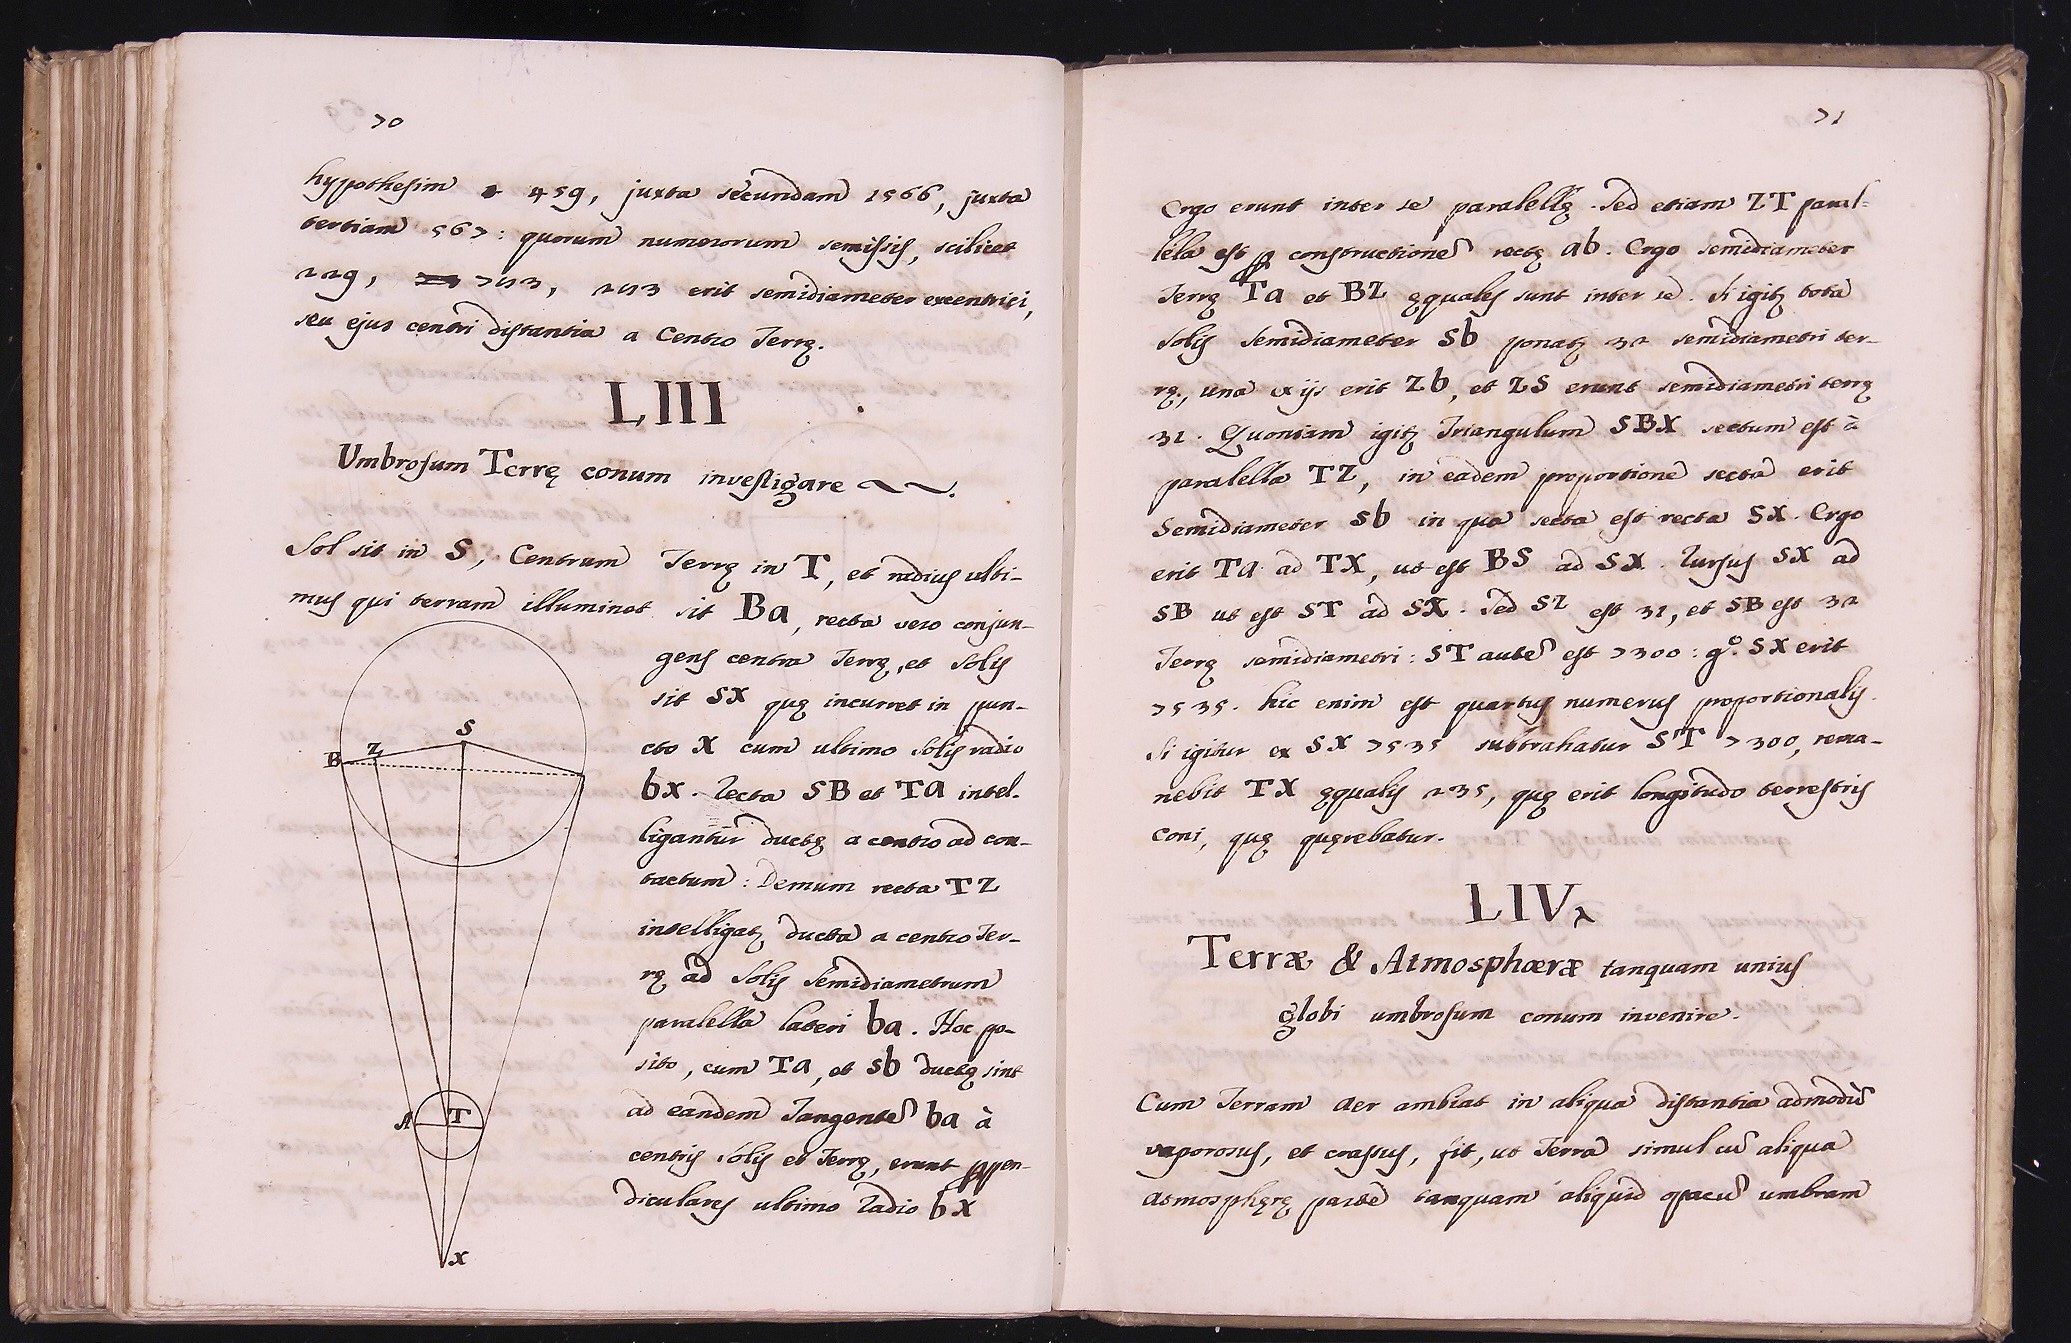 70
hypothesim 459, juxta secundam 1566, juxta
tertiam 567: quorum numerorum semissis, scilicet
229, 783, 283 erit semidiameter excentrici,
seu ejus centri distantia a Centro Terrę.
LIII
Umbrosum Terrę conum investigare
Sol sit in S, Centrum Terrę in T, et radius ulti-
mus qui terram illuminat sit Ba, recta vero conjun-
gens centra Terrę, et Solis
sit SX quę incurret in pun-
cto X cum ultimo Solis radio
bx. Recta SB et Ta intel-
ligantur ductę a centro ad con-
tactum: Demum recta TZ
intelligatꝫ ducta a centro Ter-
rę ad Solis semidiametrum
paralella lateri ba. Hoc po-
sito, cum Ta, et Sb ductę sint
ad eandem Tangentē ba à
centris Solis et Terrę, erunt ꝑpen-
diculares ultimo Radio bX
B Z S
A T
X
71
Ergo erunt inter se paralellę. Sed etiam ZT paral-
lela est ꝑ constructionē rectę ab. Ergo semidiameter
Terrę Ta et BZ ęquales sunt inter se. Si igitꝫ tota
solis semidiameter Sb ponatꝫ 32 semidiametri ter-
rę, una ex ijs erit Zb, et ZS erunt semidiametri terrę
31. Quoniam igitꝫ Triangulum SBX sectum est à
paralella TZ, in eadem proportione secta erit
Semidiameter Sb in qua secta est recta SX. Ergo
erit Ta ad TX, ut est BS ad SX. Rursus SX ad
SB ut est ST ad SX. Sed SZ est 31, et SB est 32
Terrę semidiametri: ST autē est 7300: gº. SX erit
7535. hic enim est quartus numerus proportionalis.
Si igitur ex SX 7535 subtrahatur ST 7300, rema-
nebit TX ęqualis 235, quę erit longitudo terrestris
coni, quę quęrebatur.
LIV
Terræ & Atmosphœræ tanquam unius
globi umbrosum conum invenire.
Cum Terram aer ambiat in aliqua distantia admodū
vaporosus, et crassus, fit, ut Terra simul cū aliqua
Atmosphęrę parte tanquam aliquid opacū umbram